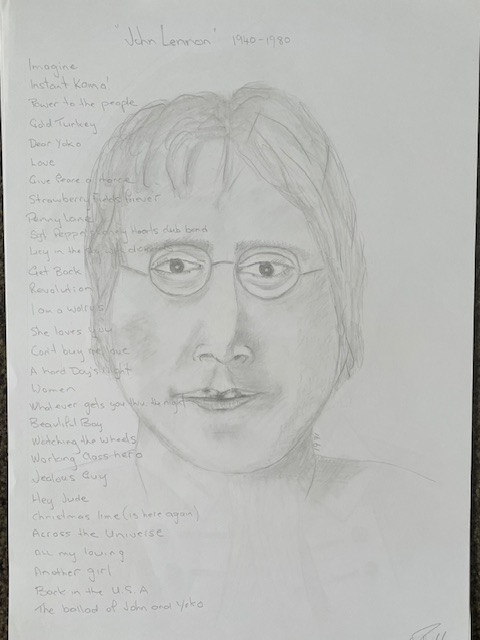 "John Lennon" 1940-1980
Imagine
Instant Kama!
Power to the people
Cold Turkey
Dear Yoko
Love
Give Peace a chance
Strawberry Fields forever
Penny Lane
Sgt Peppers lonely hearts club band
Lucy in the sky
Get Back
Revolution
I am a walrus
She loves you
Can't buy me love
A Hard Day's Night
Women
Whatever gets you thru the night
Beautiful Boy
Watching the Wheels
Working Class hero
Jealous Guy
Hey Jude
Christmas time (is here again)
Across the Universe
All my loving
Another girl
Back in the U.S.A
The ballad of John and Yoko